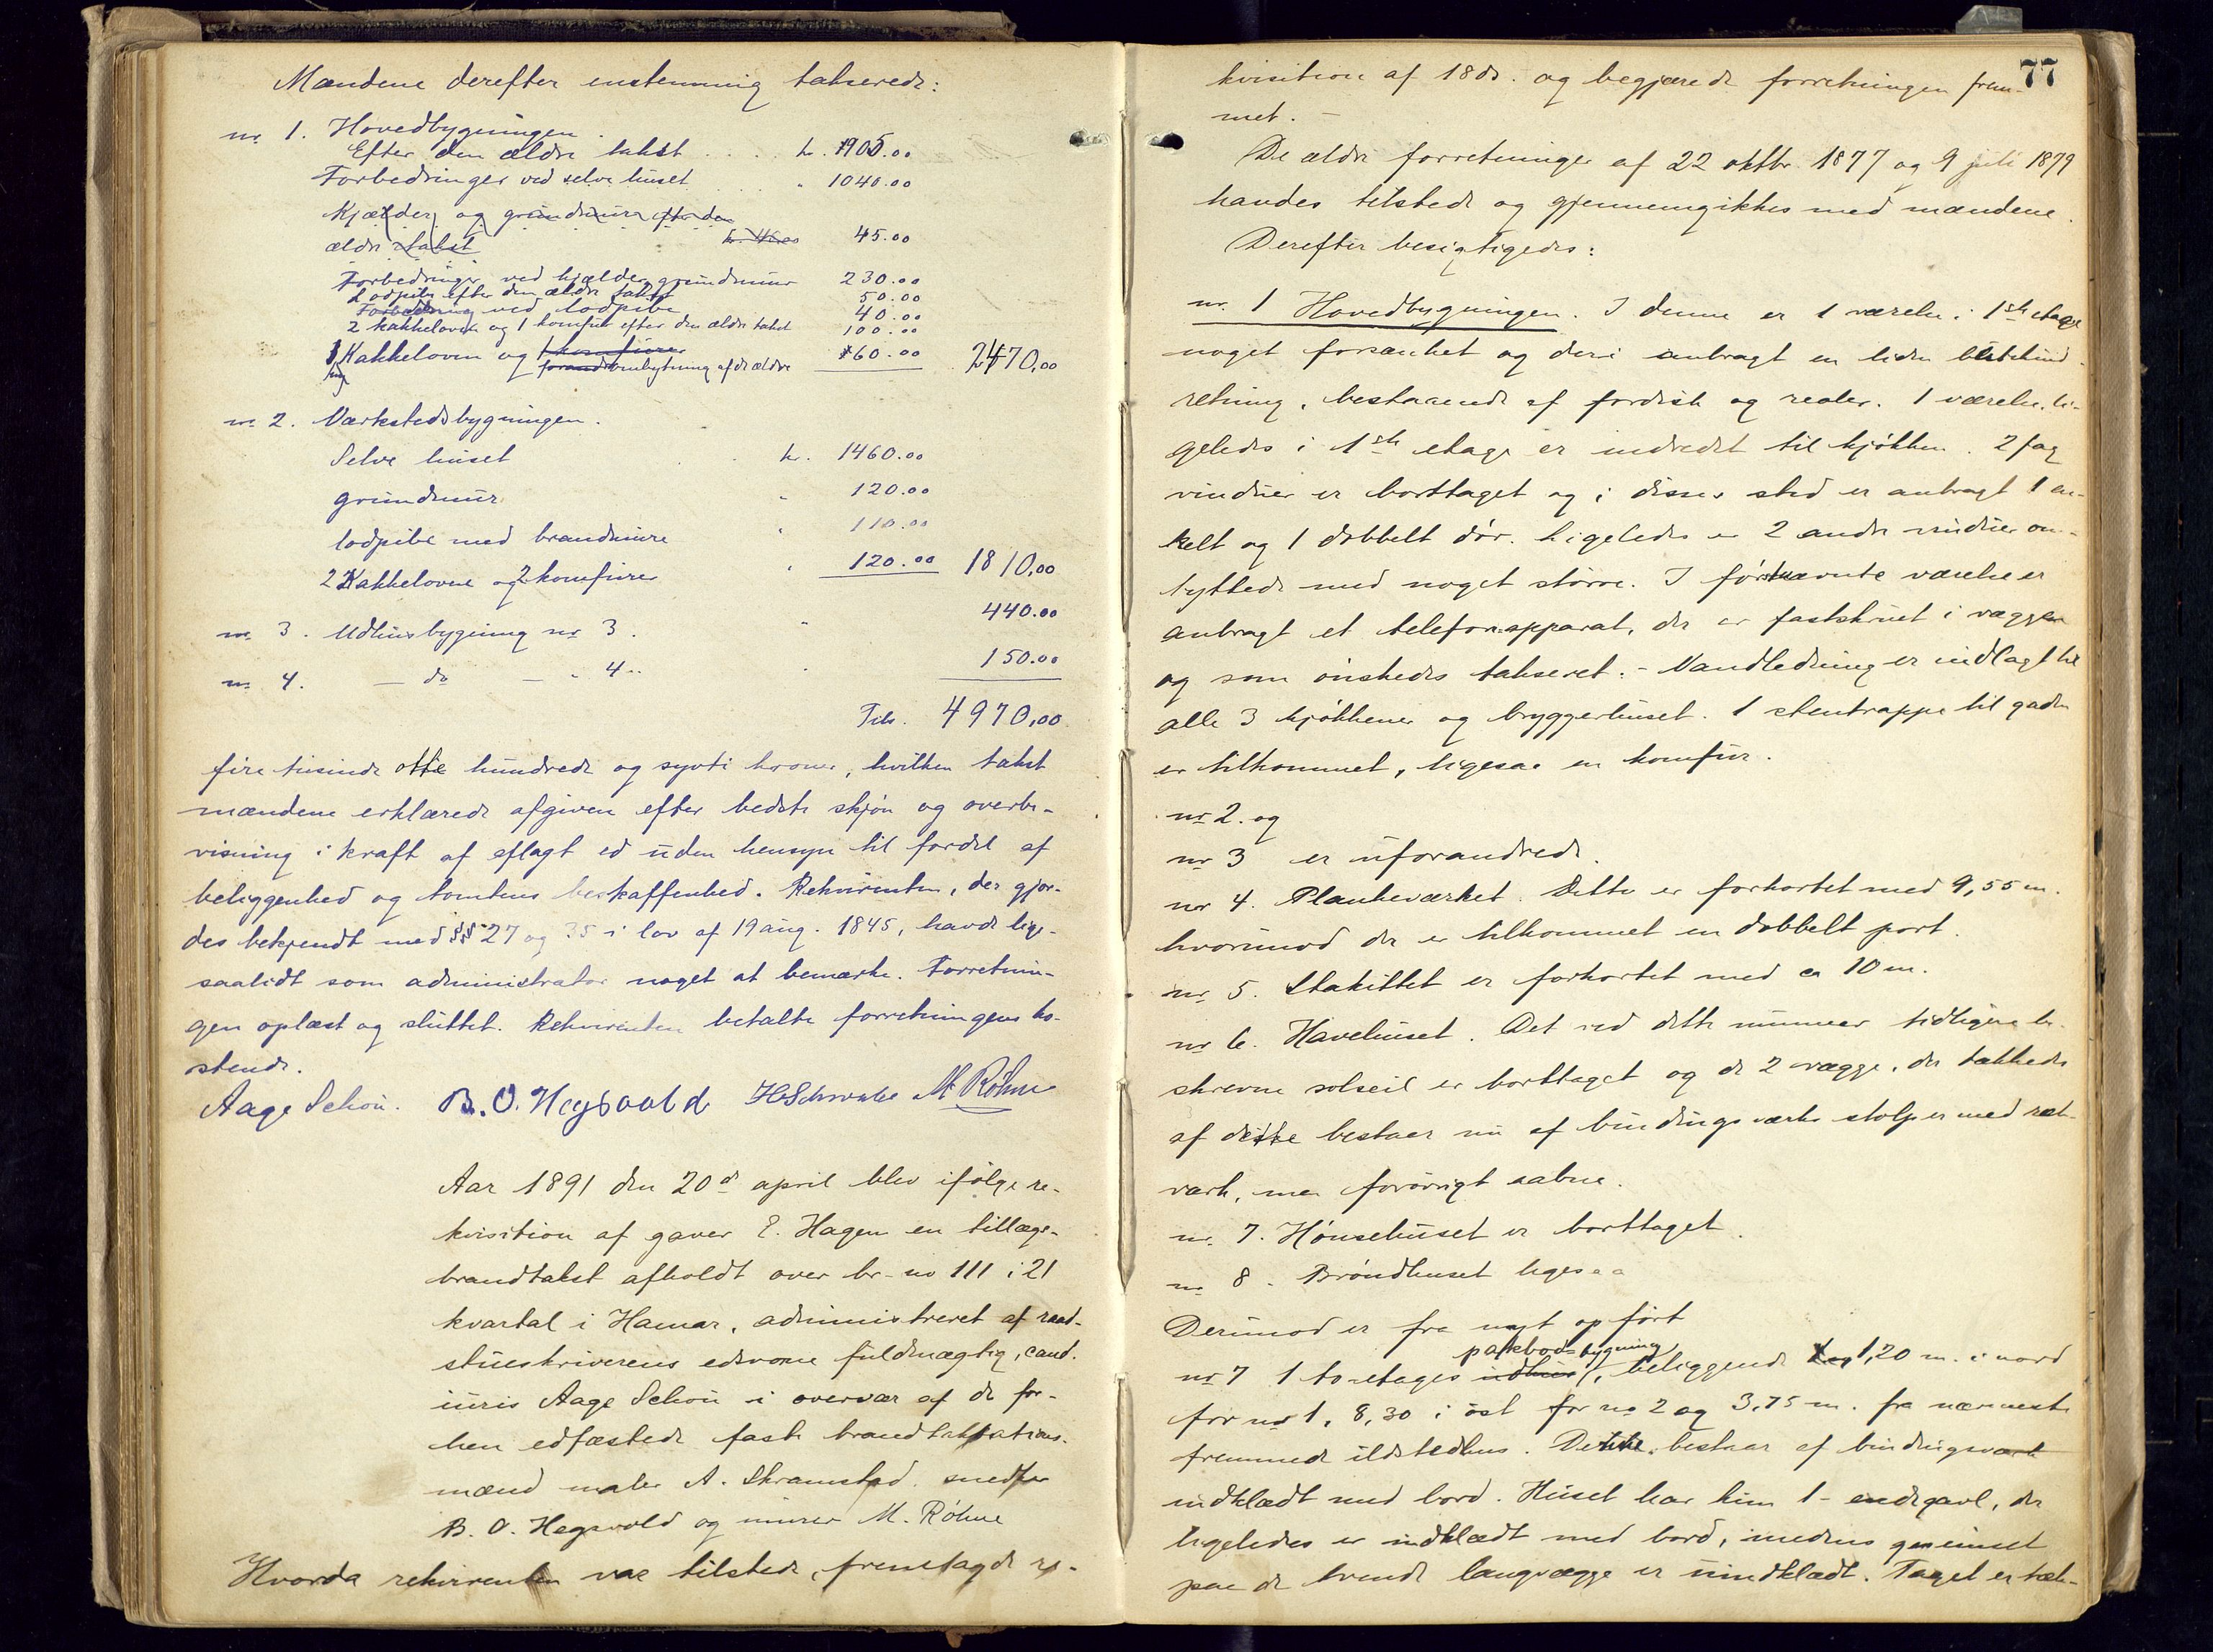 Mændene derefter enstemmig takserede:
nr. 1. Hovedbygningen.
Efter den ældre takst . . . . kr. 905.00
Forbedringer ved selve huset . . . " 1040.00
Kjælder og grundmure efter den
ældre takst 45.00
Forbedringer ved kjælder grundmur 230.00
Lodpibe efter den ældre takst 50.00
Forbedring ved lodpibe 40.00
2 kakkelovne og 1 komfur efter den ældre takst 100.00
1 Kakkelovn og ombytning af de ældre 60.00 2470,00
nr 2. Værkstedsbygningen.
Selve huset . kr. 1460.00
grundmur " 120.00
lodpibe med brandmure " 110.00
2 Kakkelovne og 2 komfurer " 120.00 1810,00
nr 3. Udhusbygning nr 3. " 440.00
nr 4. — do — " 4.. " 150.00
Tils. 4970,00
fire tusinde otte hundrede og sytti kroner, hvilken takst
mændene erklærede afgiven efter bedste skjøn og overbe-
visning i kraft af aflagt ed uden hensyn til fordel af
beliggenhed og tomtens beskaffenhed. Rekvirenten, der gjør-
des bekjendt med §§ 27 og 35 i lov af 19 aug. 1845, havde lige-
saalidt som administrator noget at bemærke. Forretnin-
gen oplæst og sluttet. Rekvirenten betalte forretningens ko-
stende.
Aage Schou. B. O. Hegsvold H Schwabe M Røhne
Aar 1891 den 20de april blev ifølge re-
kvisition af garver E. Hagen en tillægs-
brandtakst afholdt over br-no 111 i 21
kvartal i Hamar, administreret af raad-
stueskriverens edsvorne fuldmægtig, cand.
iuris Aage Schou i overvær af de for-
hen edfæstede faste brandtaksations-
mænd maler A. Skramstad, snedker
B. O. Hegsvold og murer M. Røhne
Hvorda rekvirenten var tilstede, fremlagde re-
77
kvisition af 18ds. og begjærede forretningen frem-
met. —
De ældre forretninger af 22 oktbr. 1877 og 9 juli 1879
havdes tilstede og gjennemgikkes med mændene.
Derefter besigtigedes:
nr. 1 Hovedbygningen. I denne er 1 værelse i 1ste etage
noget forsænket og deri anbragt en liden butikind-
retning, bestaaende af fordisk og reoler. 1 værelse, li-
geledes i 1ste etage er indredet til kjøkken. 2 fag
vinduer er borttaget og i disses sted er anbragt 1 en-
kelt og 1 dobbelt dør. Ligeledes er 2 andre vinduer om-
byttede med noget større. I førstnævnte værelse er
anbragt et telefonapparat, der er fastskruet i væggen
og som ønskedes takseret. – Vandledning er indlagt til
alle 3 kjøkkener og bryggerhuset. 1 stentrappe til gaden
er tilkommet, ligesaa en komfur.
nr 2. og
nr 3 er uforandrede.
nr 4. Plankeværket. Dette er forkortet med 9,55 m.
hvorimod der er tilkommet en dobbelt port.
nr 5. Stakittet er forkortet med ca 10 m.
nr 6. Havehuset. Det ved dette nummer tidligere be-
skrevne solseil er borttaget og de 2 vægge, der dækkedes
af dette bestaar nu af bindingsværks stolper med ræk-
værk, men forøvrigt aabne.
nr. 7. Hønsehuset er borttaget.
nr 8. Brøndhuset ligesaa
Derimod er fra nyt opført
pakbodsbygning
nr 7 1 to-etages udhus, beliggende 1,20 m. i nord
for nr 1, 8,30 i øst for no 2 og 3,75 m. fra nærmeste
fremmede ildstedhus. Dette bestaar af bindingsværk
indklædt med bord. Huset har kun 1 – endegavl, der
ligeledes er indklædt med bord, medens
paa de tvende langvægge er uindklædt. Taget er tæk-